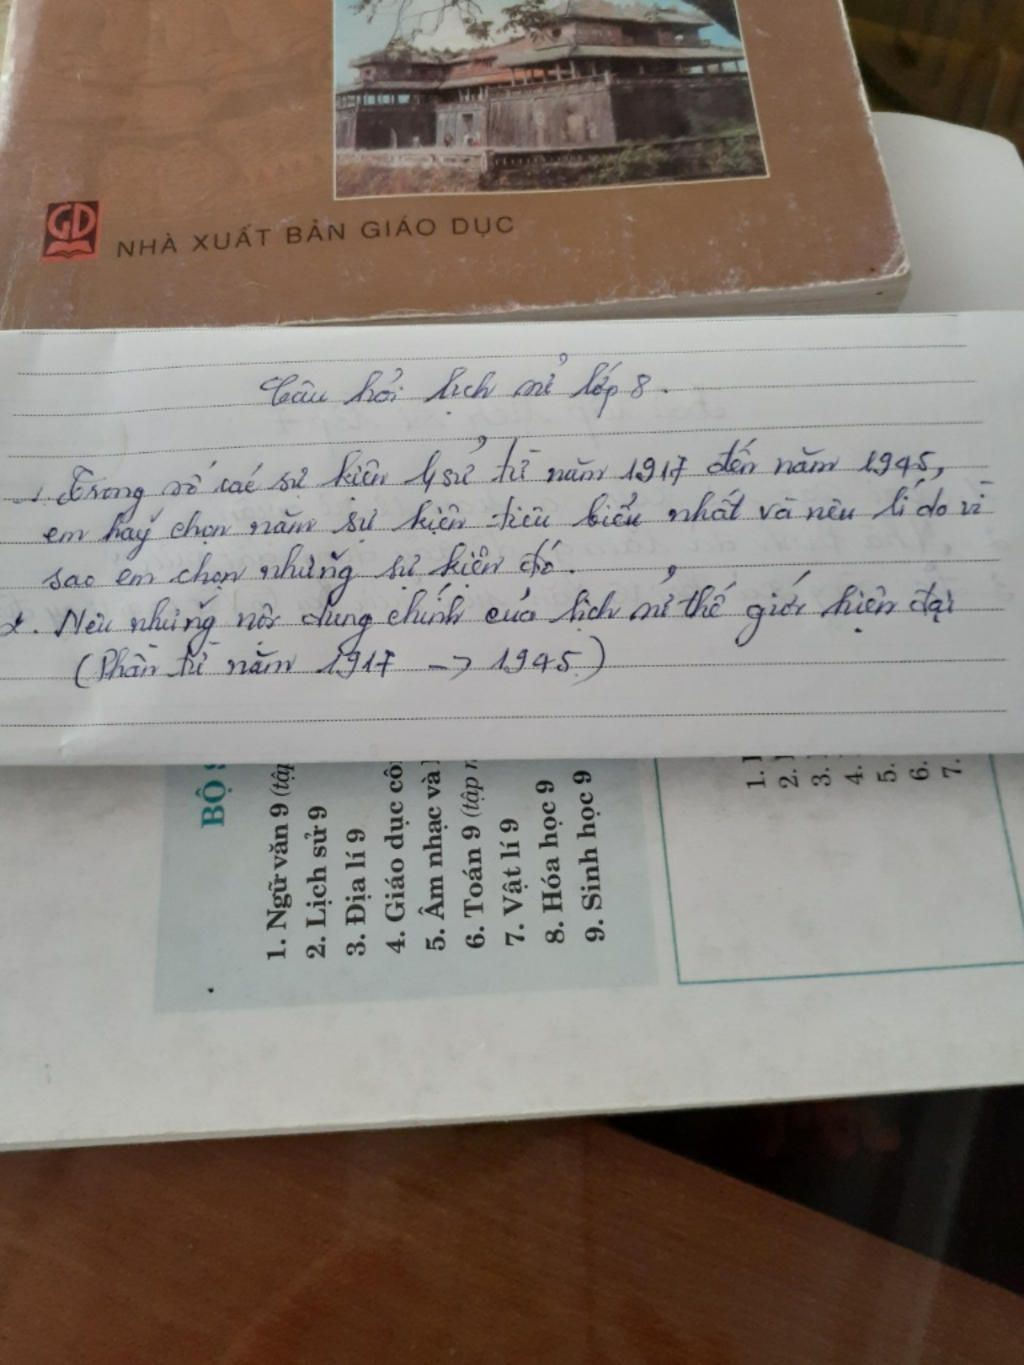 GD
NHÀ XUẤT BẢN GIÁO DỤC
Câu hỏi lịch sử lớp 8.
1. Trong số các sự kiện lsử từ năm 1917 đến năm 1945,
em hãy chọn năm sự kiện tiêu biểu nhất và nêu lí do vì
sao em chọn những sự kiện đó.
2. Nêu những nội dung chính của lịch sử thế giới hiện đại
(Phần từ năm 1917 → 1945)
BỘ
1. Ngữ văn 9 (tập
2. Lịch sử 9
3. Địa lí 9
4. Giáo dục cô
5. Âm nhạc và
6. Toán 9 (tập
7. Vật lí 9
8. Hóa học 9
9. Sinh học 9
1.
2.
3.
4.
5.
6.
7.